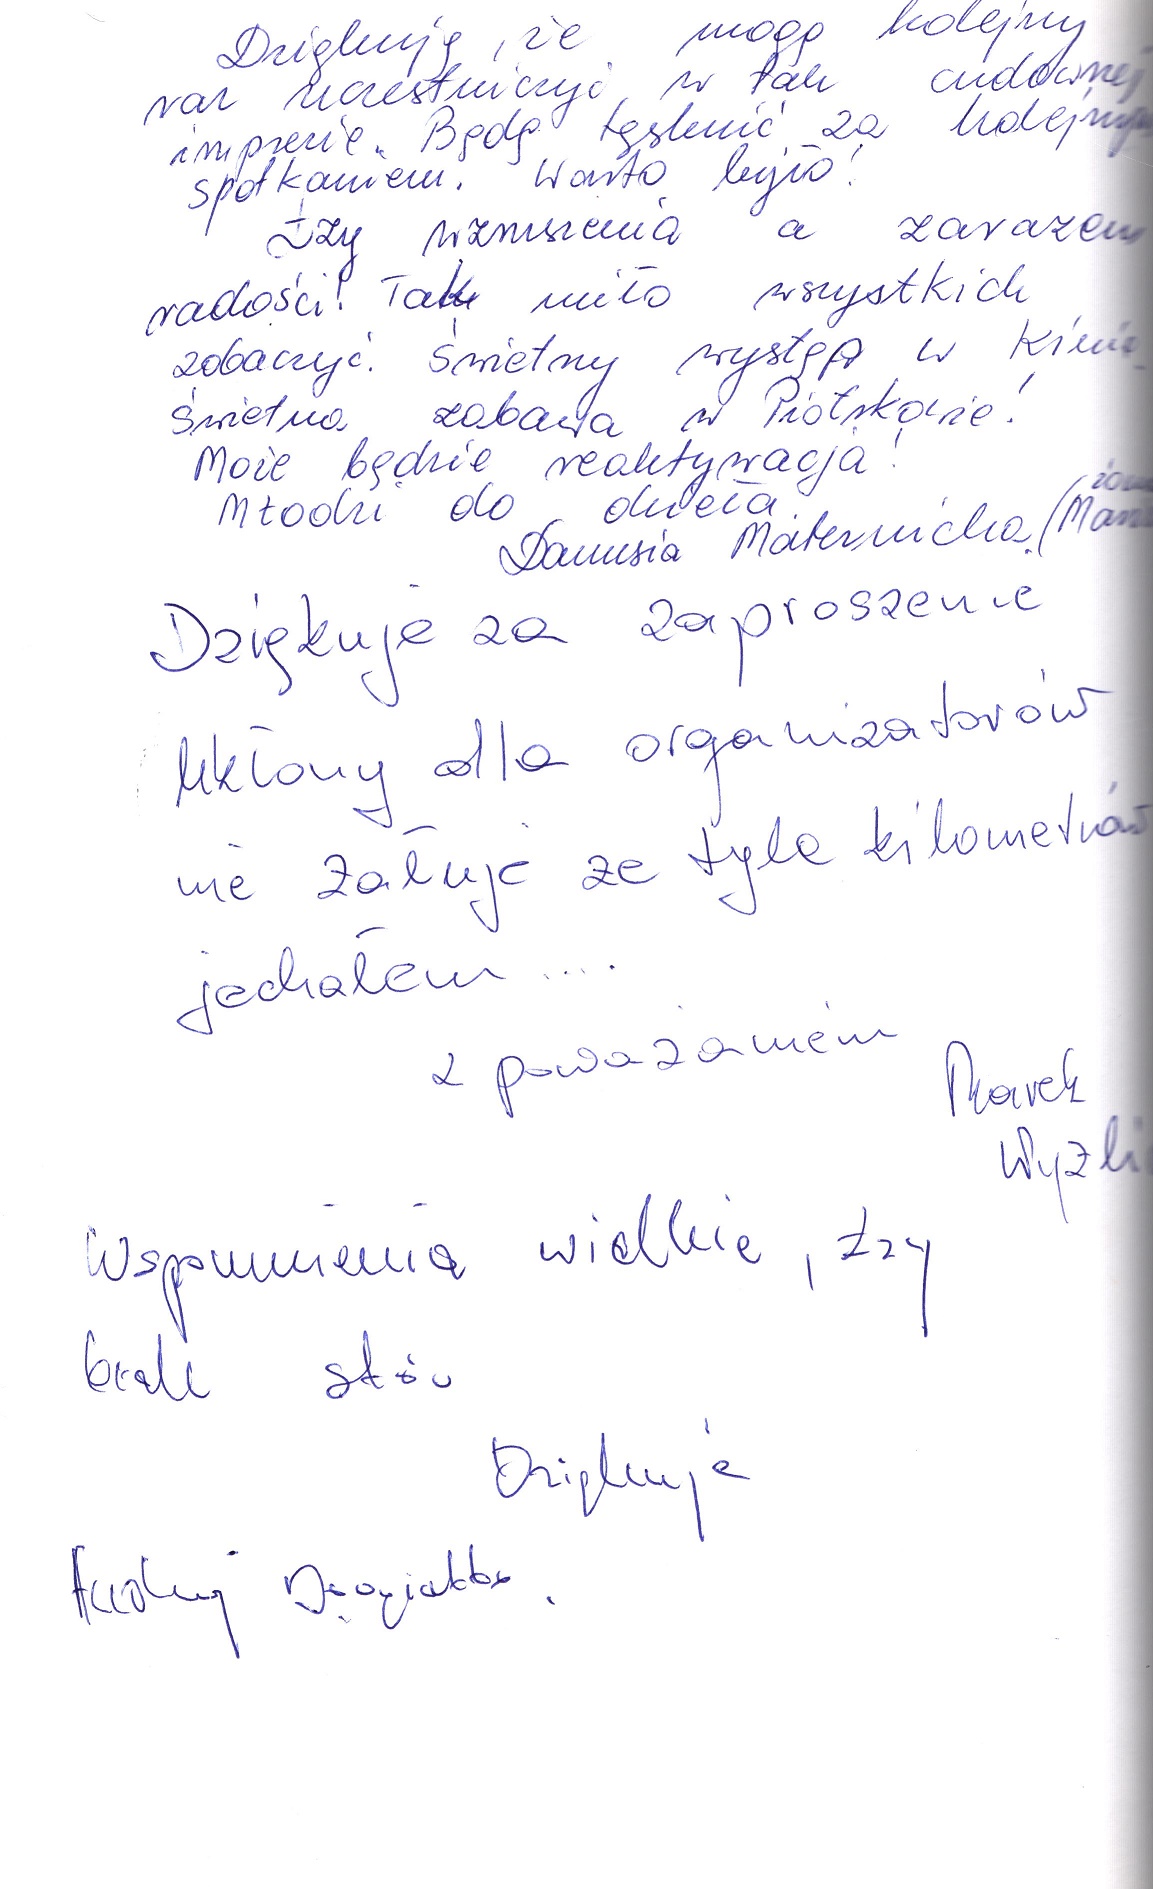 Dziękuję, że mogę kolejny
raz uczestniczyć w tak cudownej
imprezie. Będę tęsknić za kolejnym
spotkaniem. Warto było!
Łzy wzruszenia a zarazem
radości! Tak miło wszystkich
zobaczyć. Świetny występ w
Świetna zabawa w Piotrkowie!
Może będzie reaktywacja!
Młodzi do dzieła.
Danusia Maternicka
Dziękuje za zaproszenie
Ukłony dla organizatorów
nie żałuje że tyle kilometrów
jechałem ....
z poważaniem
Marek
Wspomnienia wielkie, łzy
brak słów
Dziękuje
Andrzej